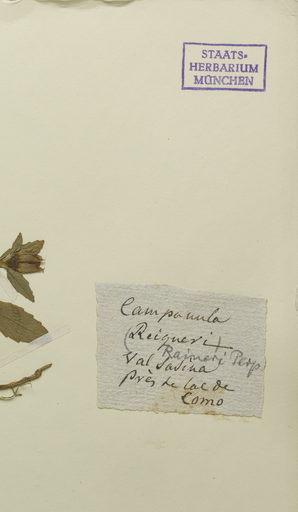 STAATS-
HERBARIUM
MÜNCHEN
Campanula
(Reigneri)
Raineri Perp
Val Sasina
près le lac de
Como